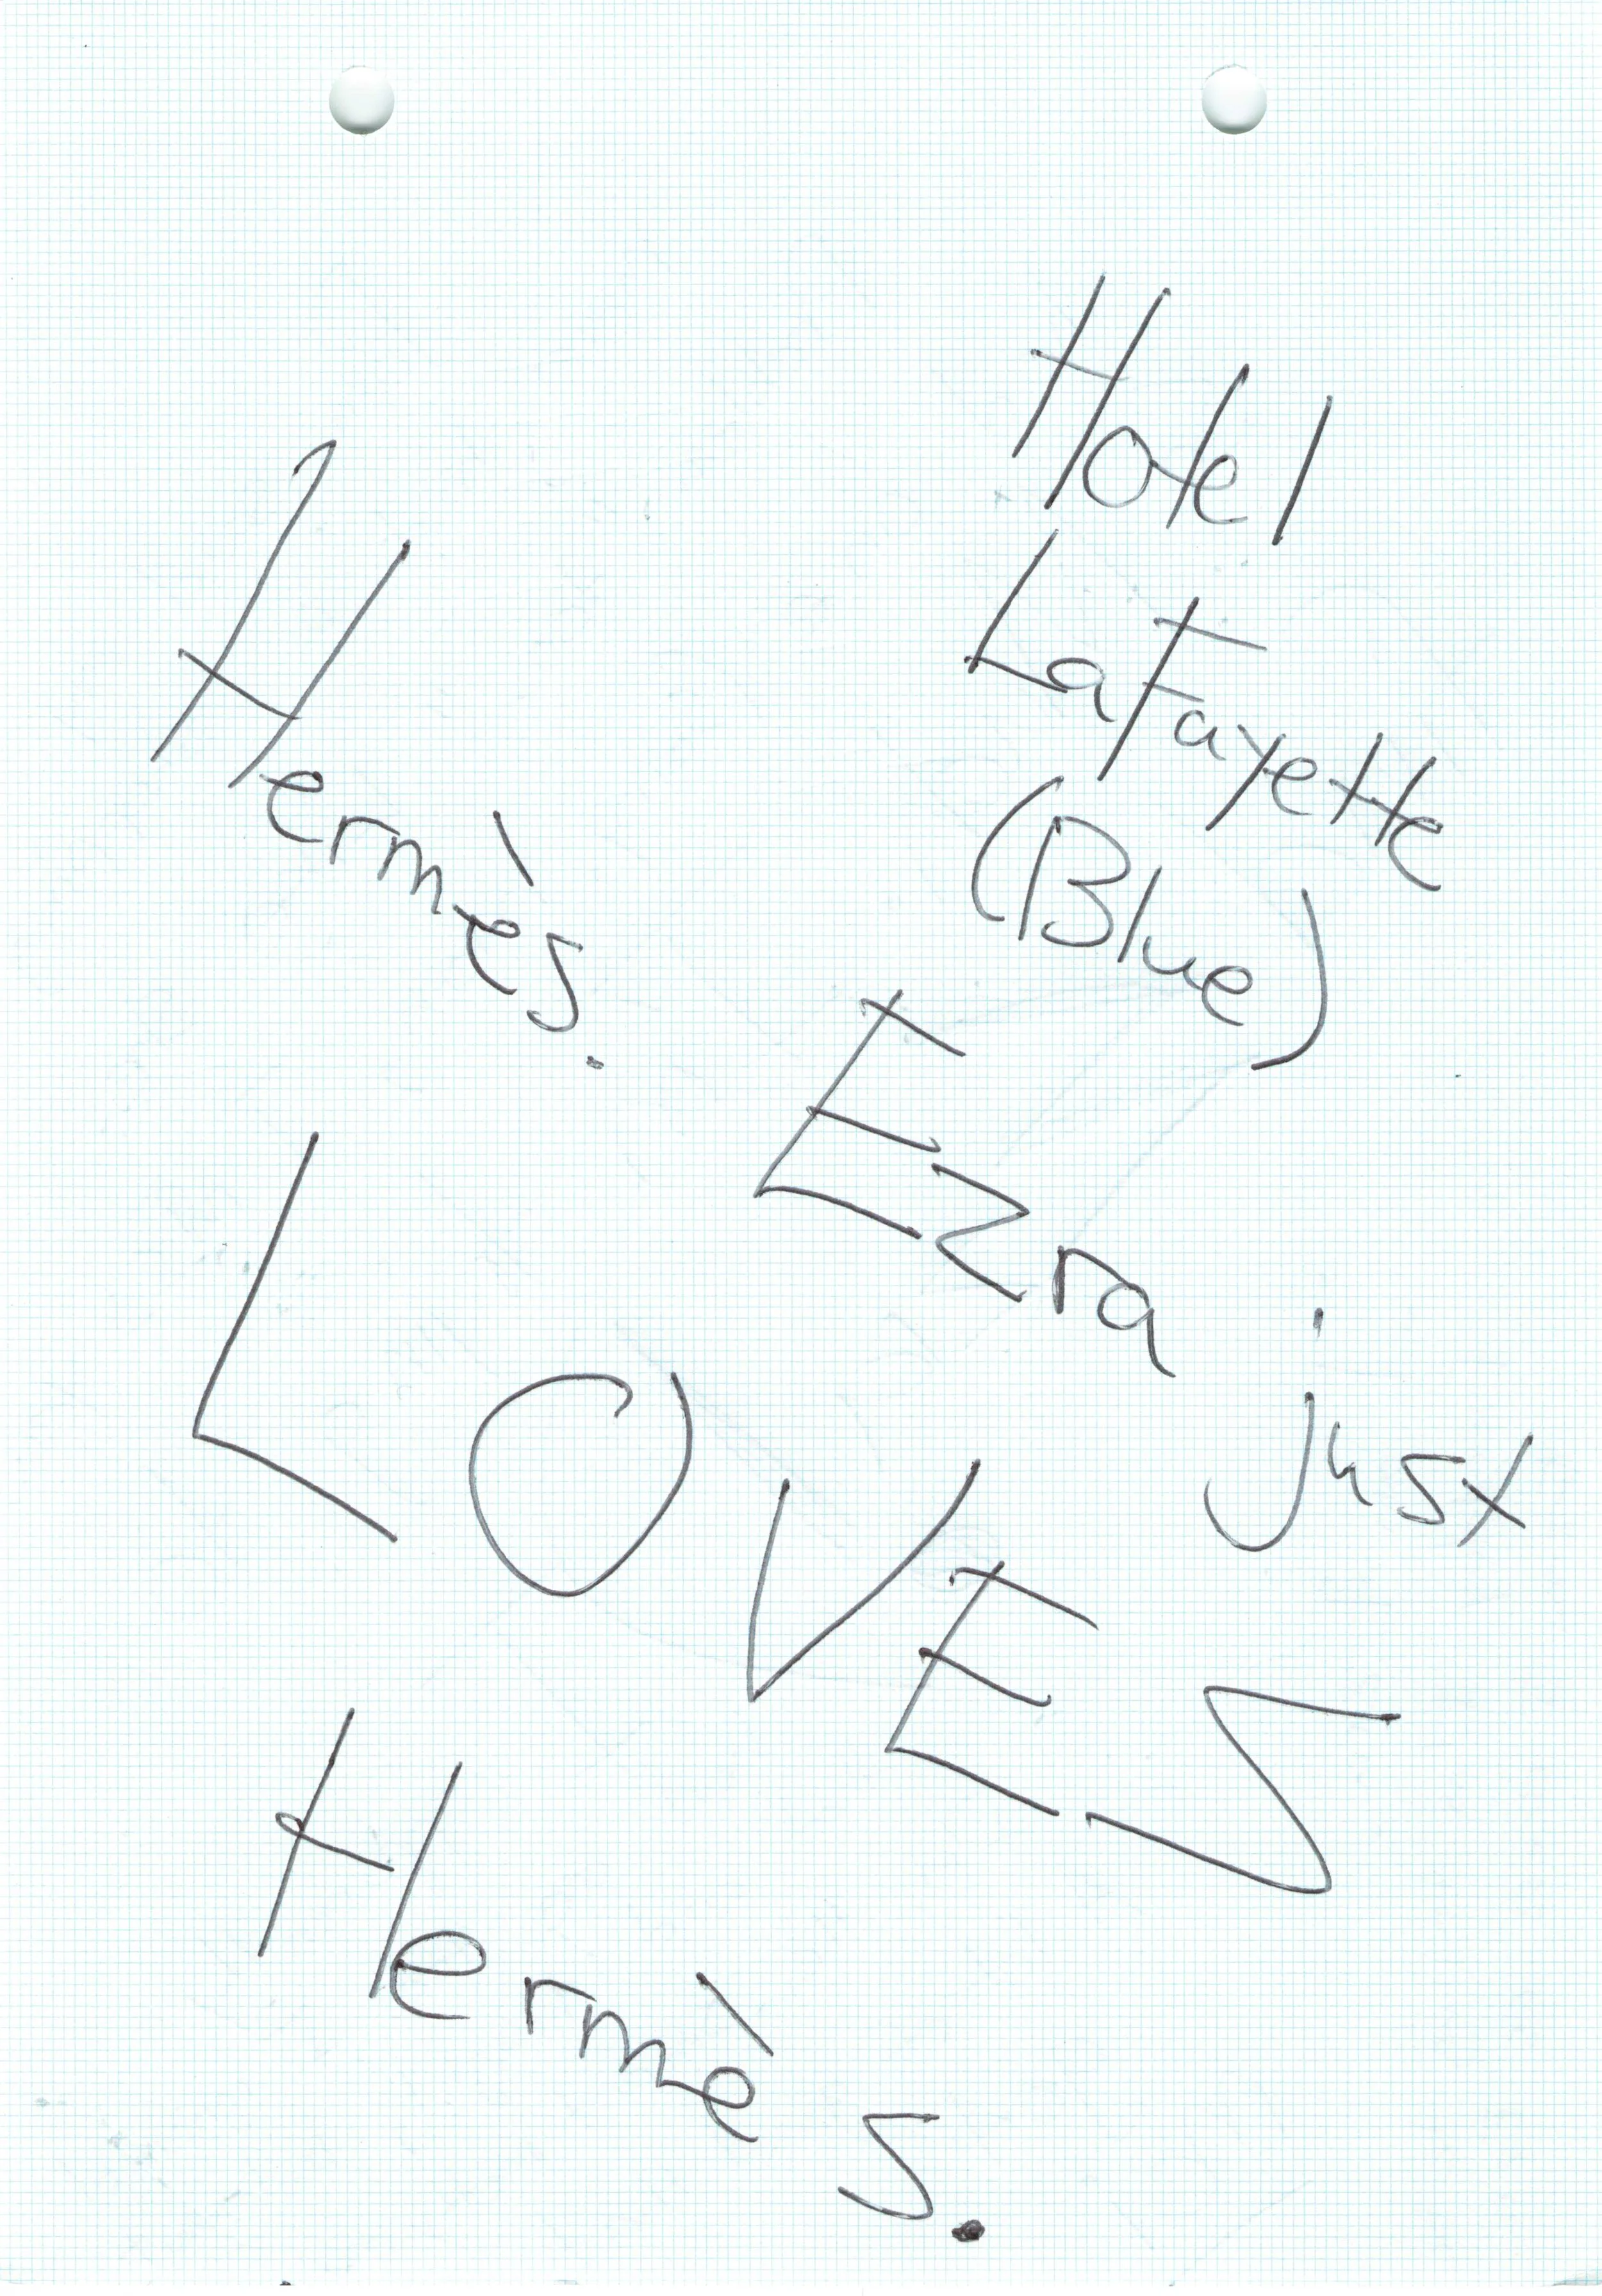 Hotel
LaFayette
(Blue)
Hermès.
Ezra just
LOVES
Hermès.